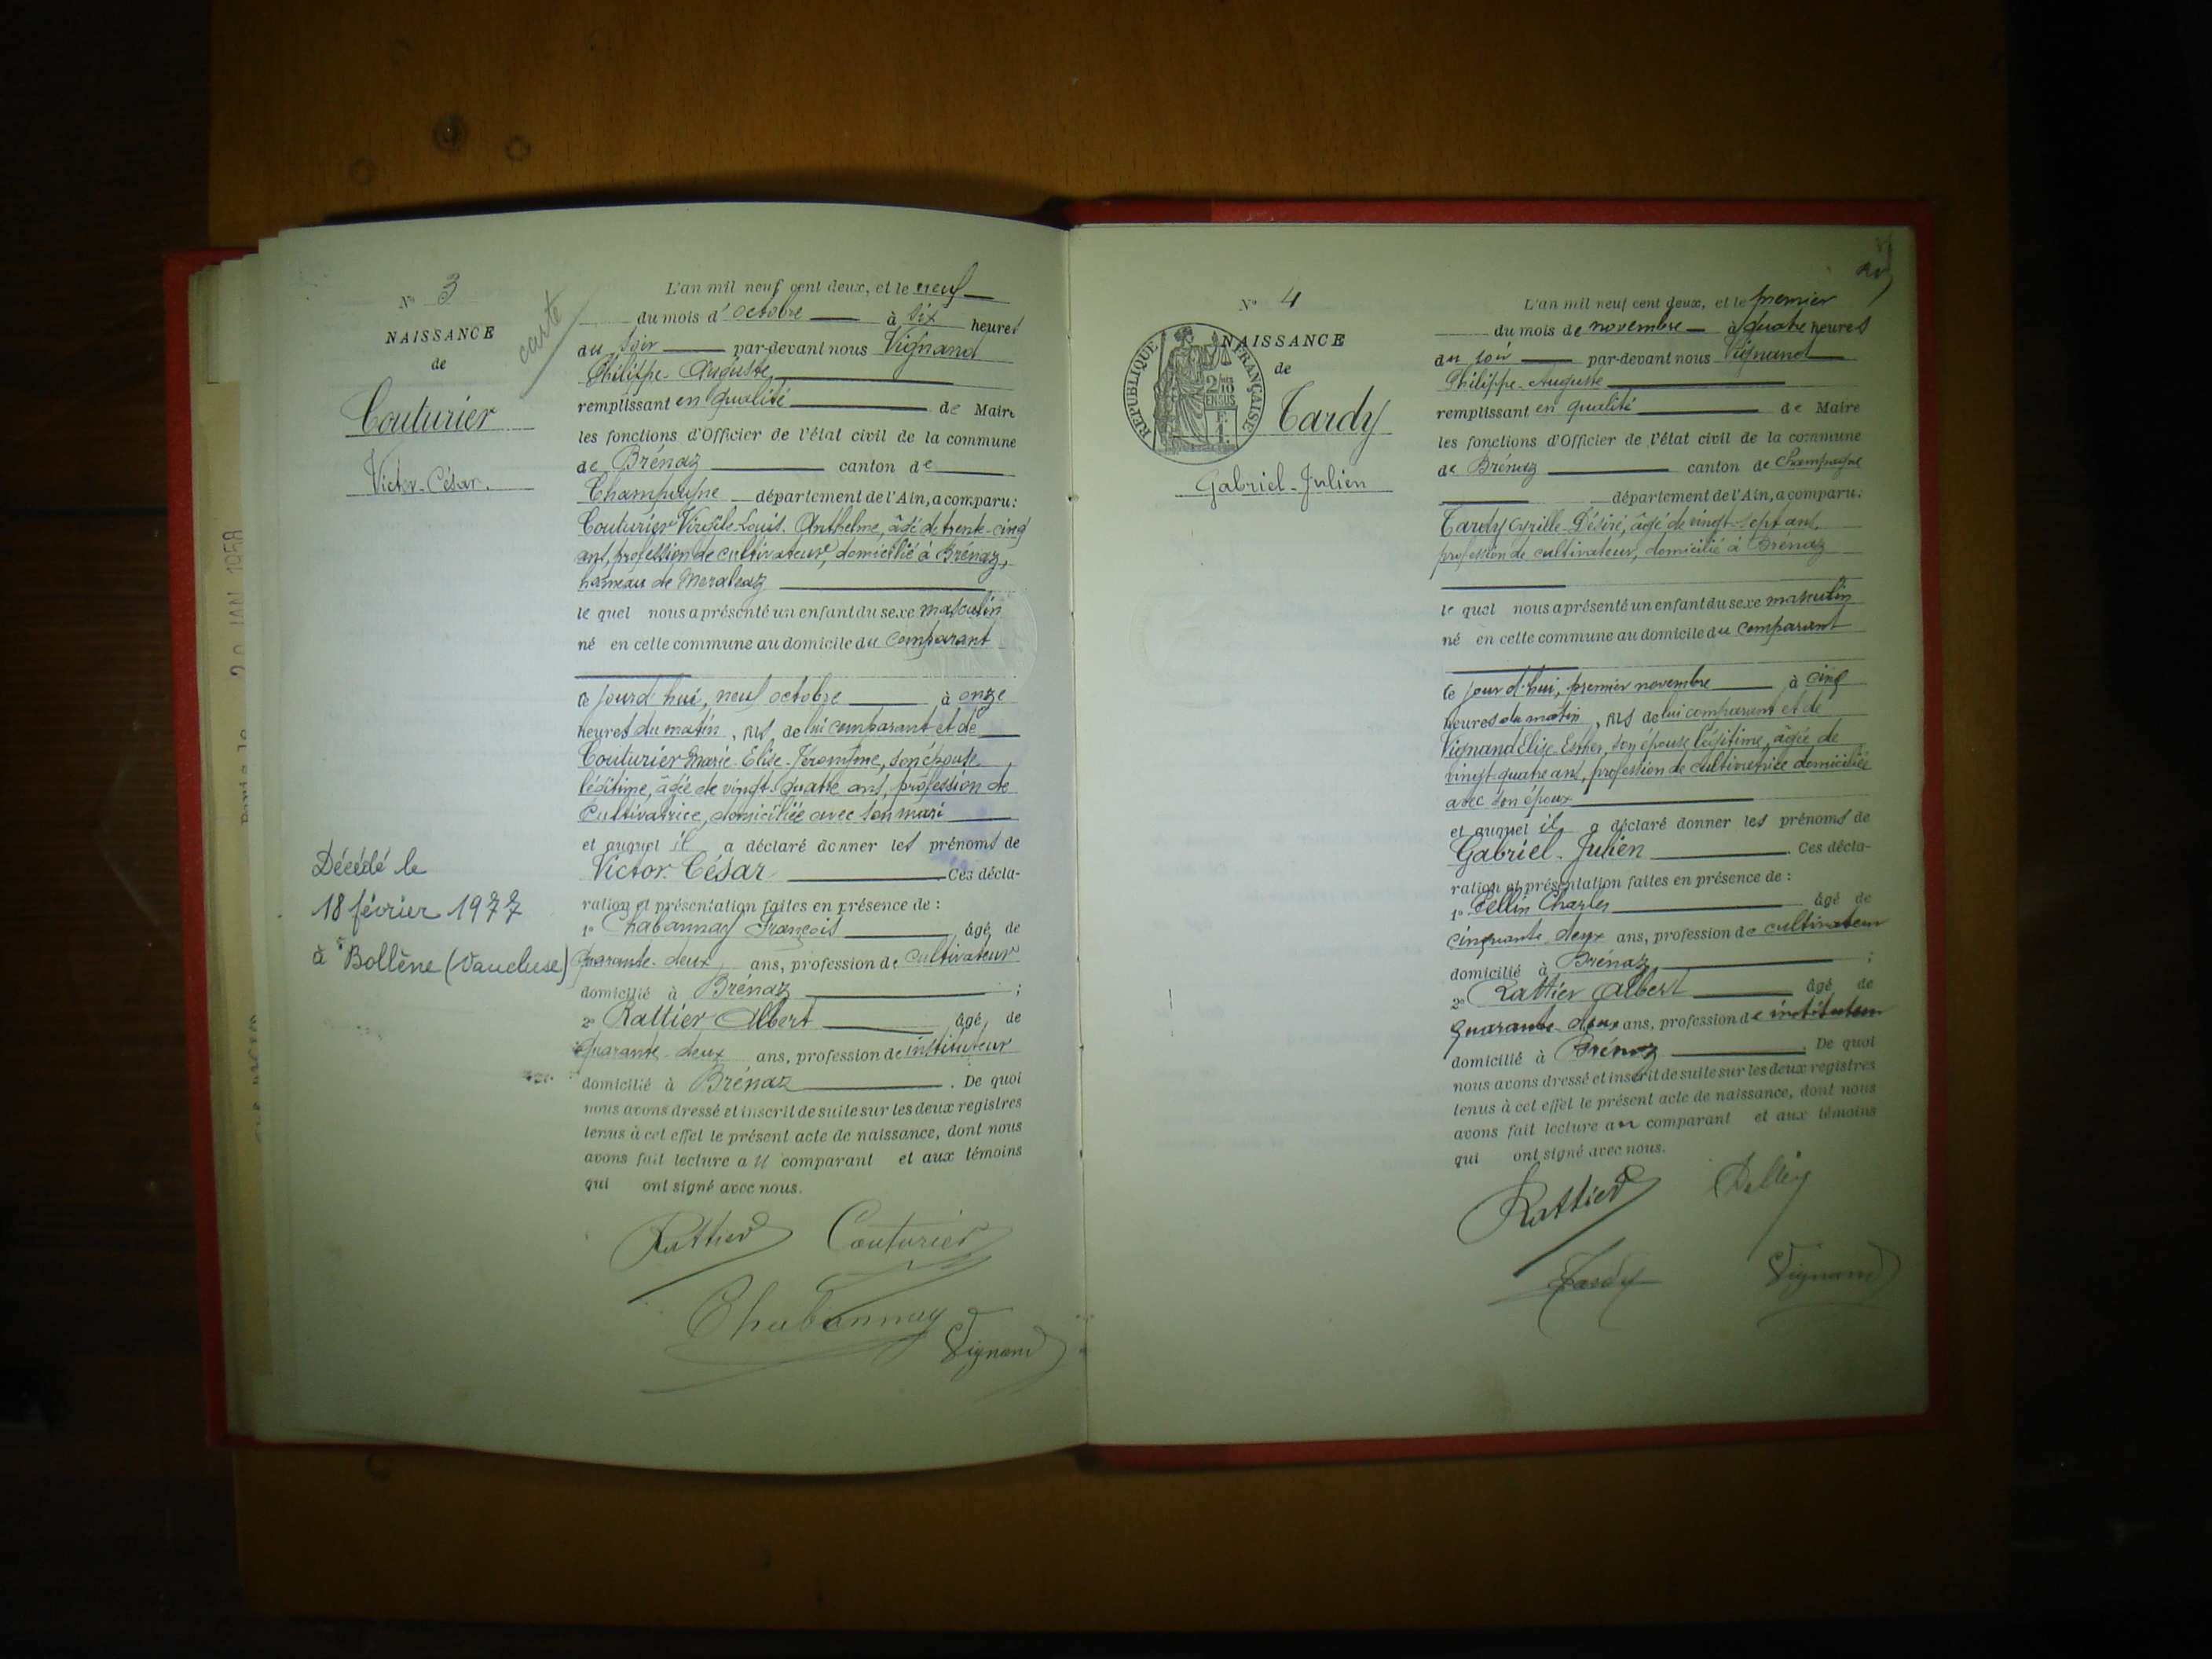 20 JAN 1958
N° 3
NAISSANCE
de
Couturier
Victor-César.
carte
Décédé le
18 février 1977
à Bollène (Vaucluse)
L'an mil neuf cent deux, et le neuf
du mois d'octobre à six heures
du soir par-devant nous Vignand
Philippe-Auguste
remplissant en qualité de Maire
les fonctions d'Officier de l'état civil de la commune
de Brénaz canton de
Champagne département de l'Ain, a comparu:
Couturier Virgile-Louis-Anthelme, âgé de trente-cinq
ans, profession de cultivateur, domicilié à Brénaz,
hameau de Meraleaz
le quel nous a présenté un enfant du sexe masculin
né en cette commune au domicile du comparant
ce jourd'hui, neuf octobre à onze
heures du matin, fils de lui comparant et de
Couturier Marie-Elise-Jeronyme, son épouse
légitime, âgée de vingt-quatre ans, profession de
cultivatrice, domiciliée avec son mari
et auquel il a déclaré donner les prénoms de
Victor-César Ces décla-
ration et présentation faites en présence de :
1° Chabannay François âgé de
quarante-deux ans, profession de cultivateur
domicilié à Brénaz ;
2° Rattier Albert âgé de
quarante-deux ans, profession de instituteur
domicilié à Brénaz . De quoi
nous avons dressé et inscrit de suite sur les deux registres
tenus à cet effet le présent acte de naissance, dont nous
avons fait lecture au comparant et aux témoins
qui ont signé avec nous.
Rattier Couturier
Chabannay
Vignand
N° 4
NAISSANCE
de
Tardy
Gabriel-Julien
RÉPUBLIQUE FRANÇAISE
2/10
EN SUS
L'an mil neuf cent deux, et le premier
du mois de novembre à quatre heures
du soir par-devant nous Vignand
Philippe-Auguste
remplissant en qualité de Maire
les fonctions d'Officier de l'état civil de la commune
de Brénaz canton de Champagne
département de l'Ain, a comparu:
Tardy Cyrille-Désiré, âgé de vingt-sept ans,
profession de cultivateur, domicilié à Brénaz
le quel nous a présenté un enfant du sexe masculin
né en cette commune au domicile du comparant
ce jour d'hui, premier novembre à cinq
heures du matin, fils de lui comparant et de
Vignand Elise-Esther, son épouse légitime, âgée de
vingt-quatre ans, profession de cultivatrice domiciliée
avec son époux
et auquel il a déclaré donner les prénoms de
Gabriel-Julien . Ces décla-
ration et présentation faites en présence de :
1° Cellin Charles âgé de
cinquante-deux ans, profession de cultivateur
domicilié à Brénaz ;
2° Rattier Albert âgé de
quarante-deux ans, profession de instituteur
domicilié à Brénaz . De quoi
nous avons dressé et inscrit de suite sur les deux registres
tenus à cet effet le présent acte de naissance, dont nous
avons fait lecture au comparant et aux témoins
qui ont signé avec nous.
Rattier
Tardy Vignand